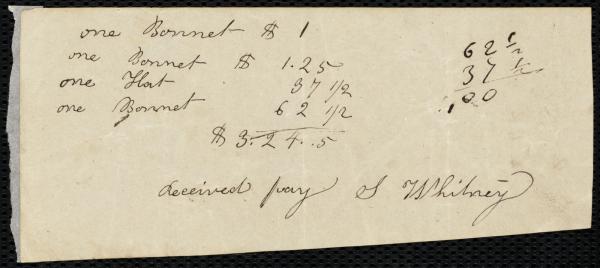 one Bonnet $ 1
one Bonnet $ 1.25
one Hat 37 1/2
one Bonnet 62 1/2
$ 3.24.5
62 1/2
37 1/2
1,00
Received pay S Whitney